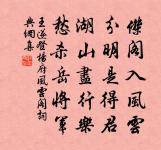 傑閣入風雲
分明是得君
湖山盡行樂
愁杀岳將軍
王遂登楊府風雲閣詞
典網集